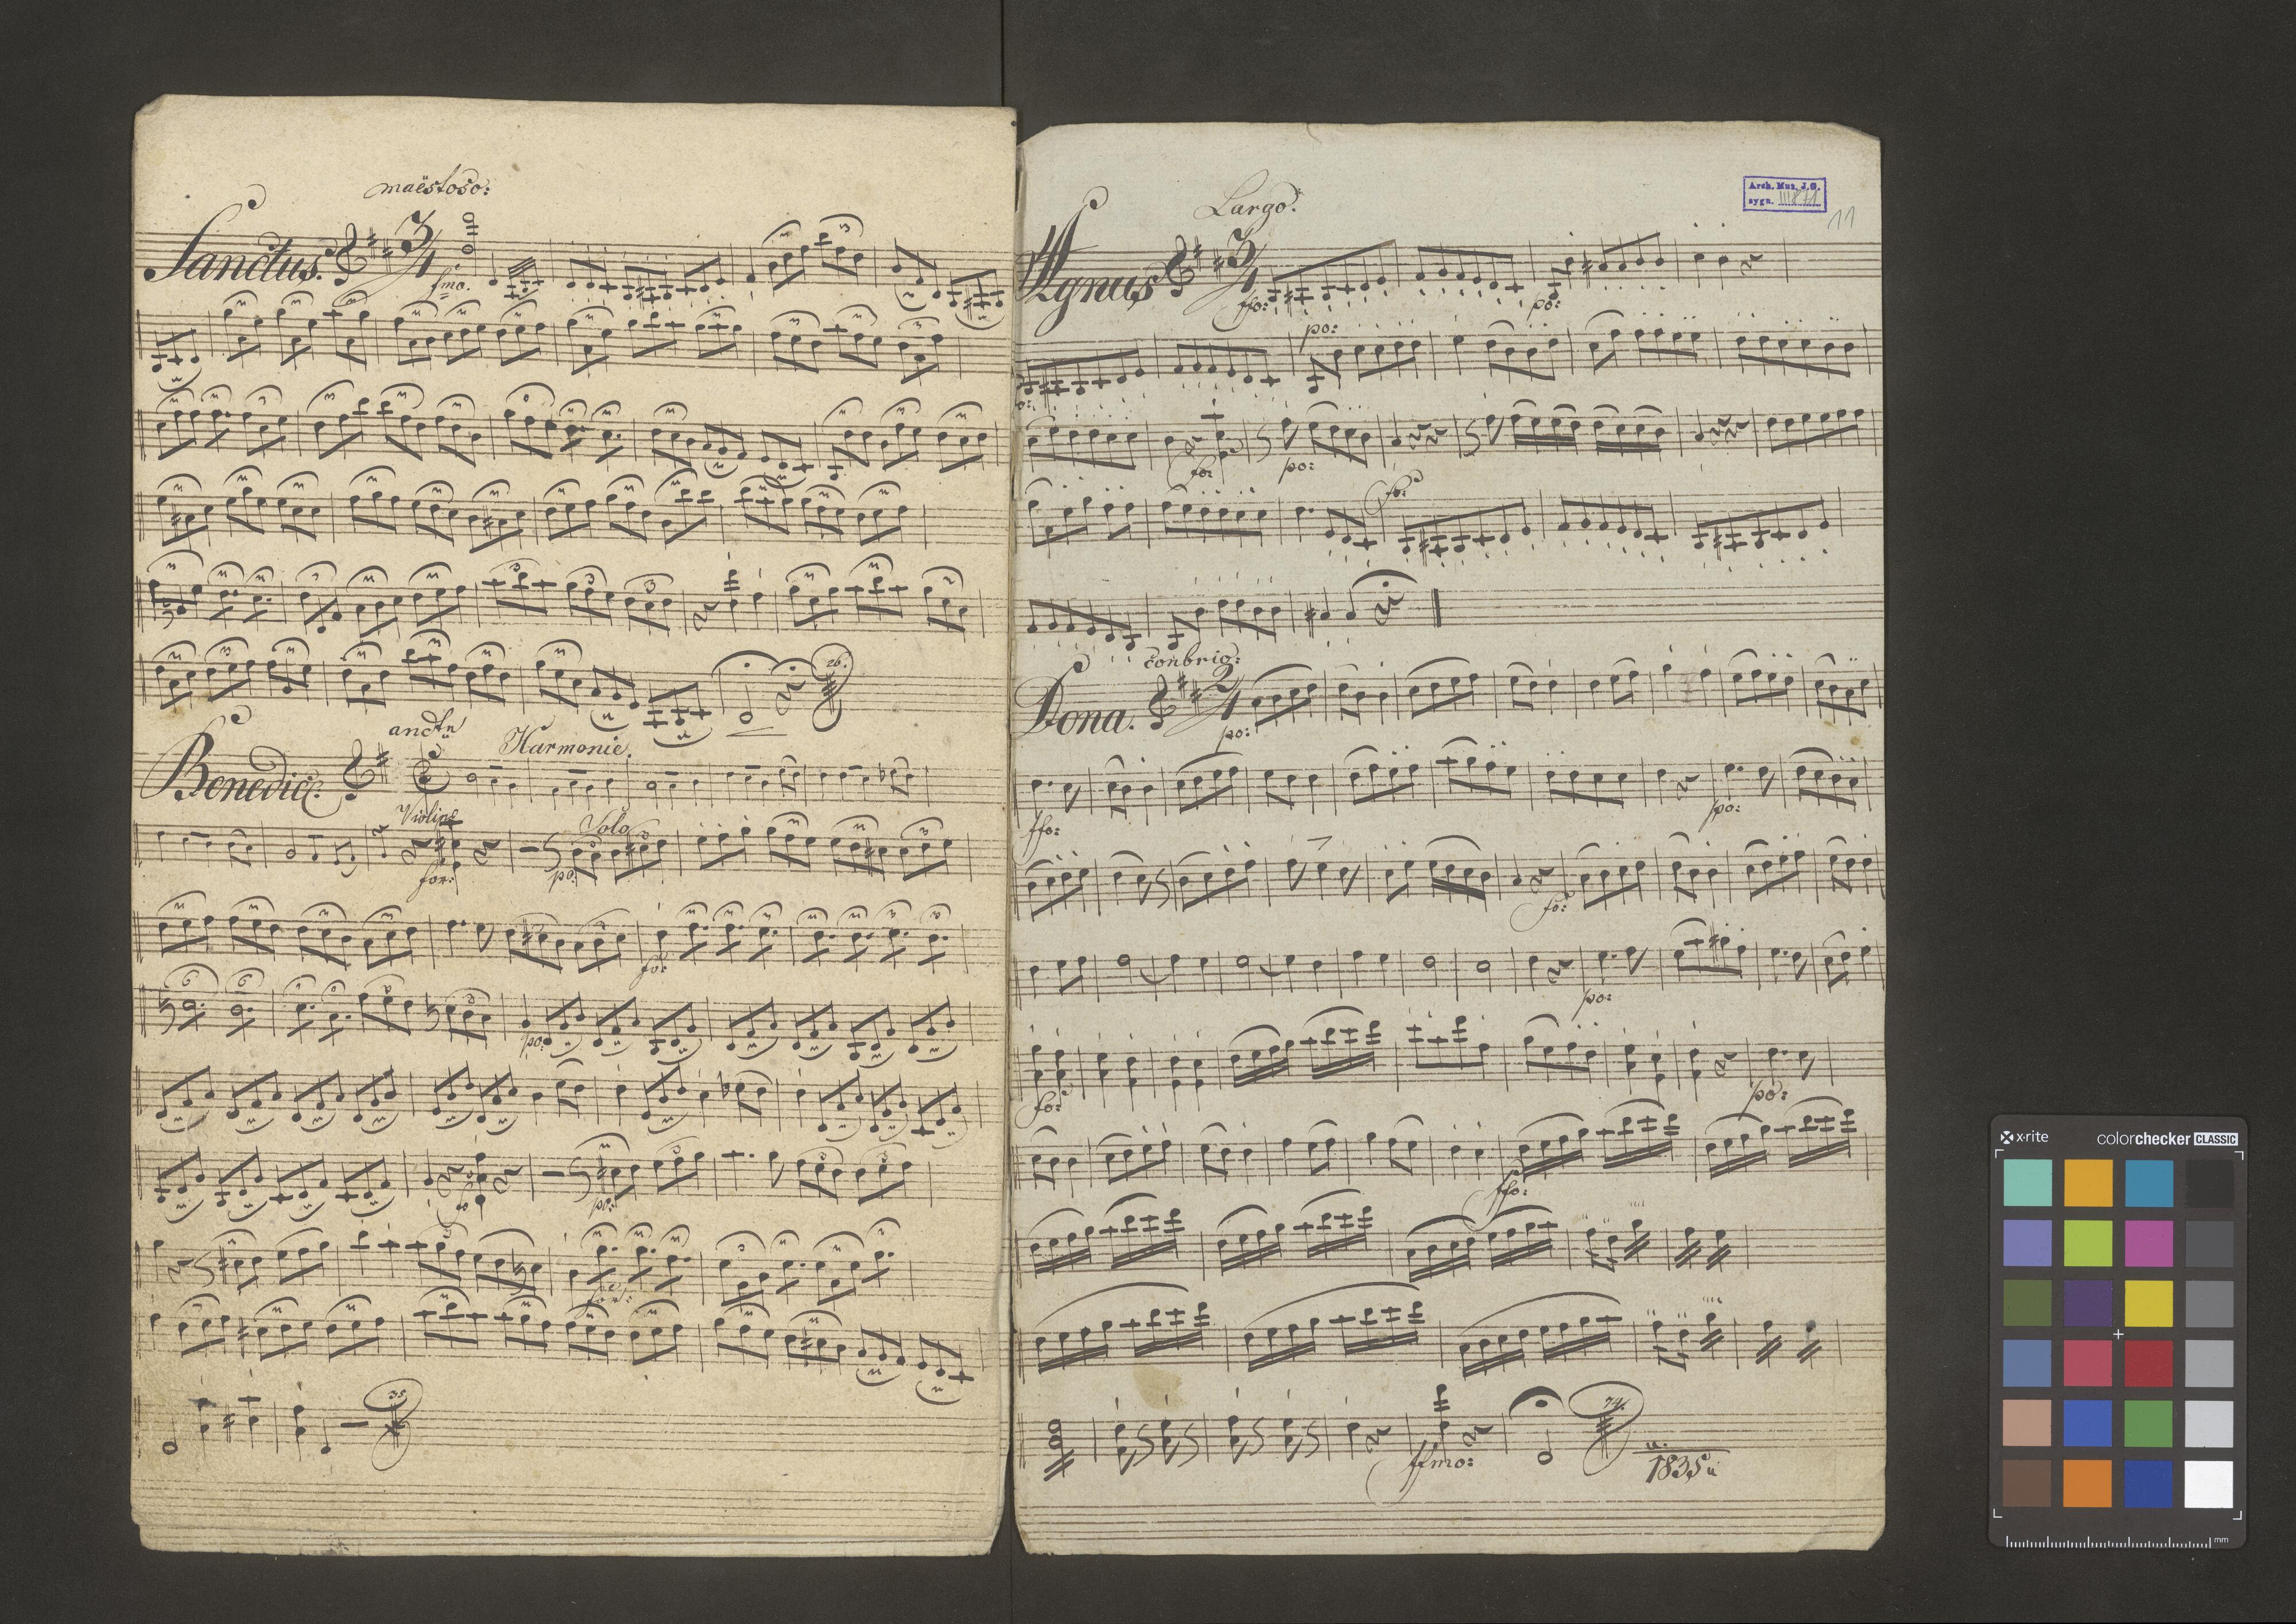 maëstoso:
Sanctus. 3/4
fmo.
26.
andtn
Harmonie.
Benedict. C
Violine
Solo
for:
po:
fo:
po:
fo
po:
for:
35
Arch. Muz. J.G.
sygn. III 871
11
Largo.
Agnus 3/4
ffo:
po:
po:
fo:
po:
fo:
conbrio:
Dona. 2/4
po:
ffo:
po:
fo:
po:
fo:
po:
ffo:
ffmo:
74.
1835
x-rite
colorchecker CLASSIC
mm